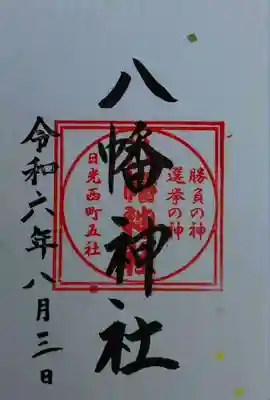 勝負の神
選挙の神
八幡神社
日光西町五社
令和六年八月三日